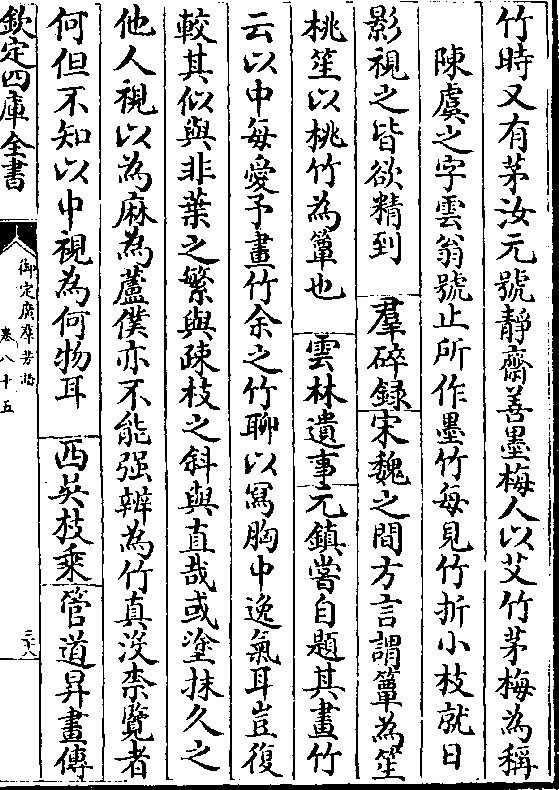 竹時又有茅汝元號靜齋善墨梅人以艾竹茅梅為稱
陳虞之字雲翁號止所作墨竹每見竹折小枝就日
影視之皆欲精到　羣碎録宋魏之間方言謂簟為笙
桃笙以桃竹為簟也　雲林遺事元鎮嘗自題其畫竹
云以中每愛予畫竹余之竹聊以寫胸中逸氣耳豈復
較其似與非葉之繁與疎枝之斜與直哉或塗抹久之
他人視以為麻為蘆僕亦不能强辨為竹真没柰覽者
何但不知以中視為何物耳　西吳枝乘管道昇畫傳
欽定四庫全書
御定廣羣芳譜
卷八十五
三十八